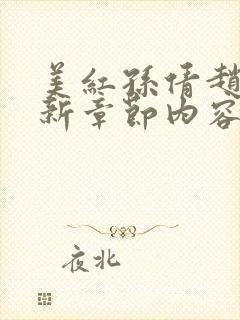 美红孙倩赵
新章节内容
夜北